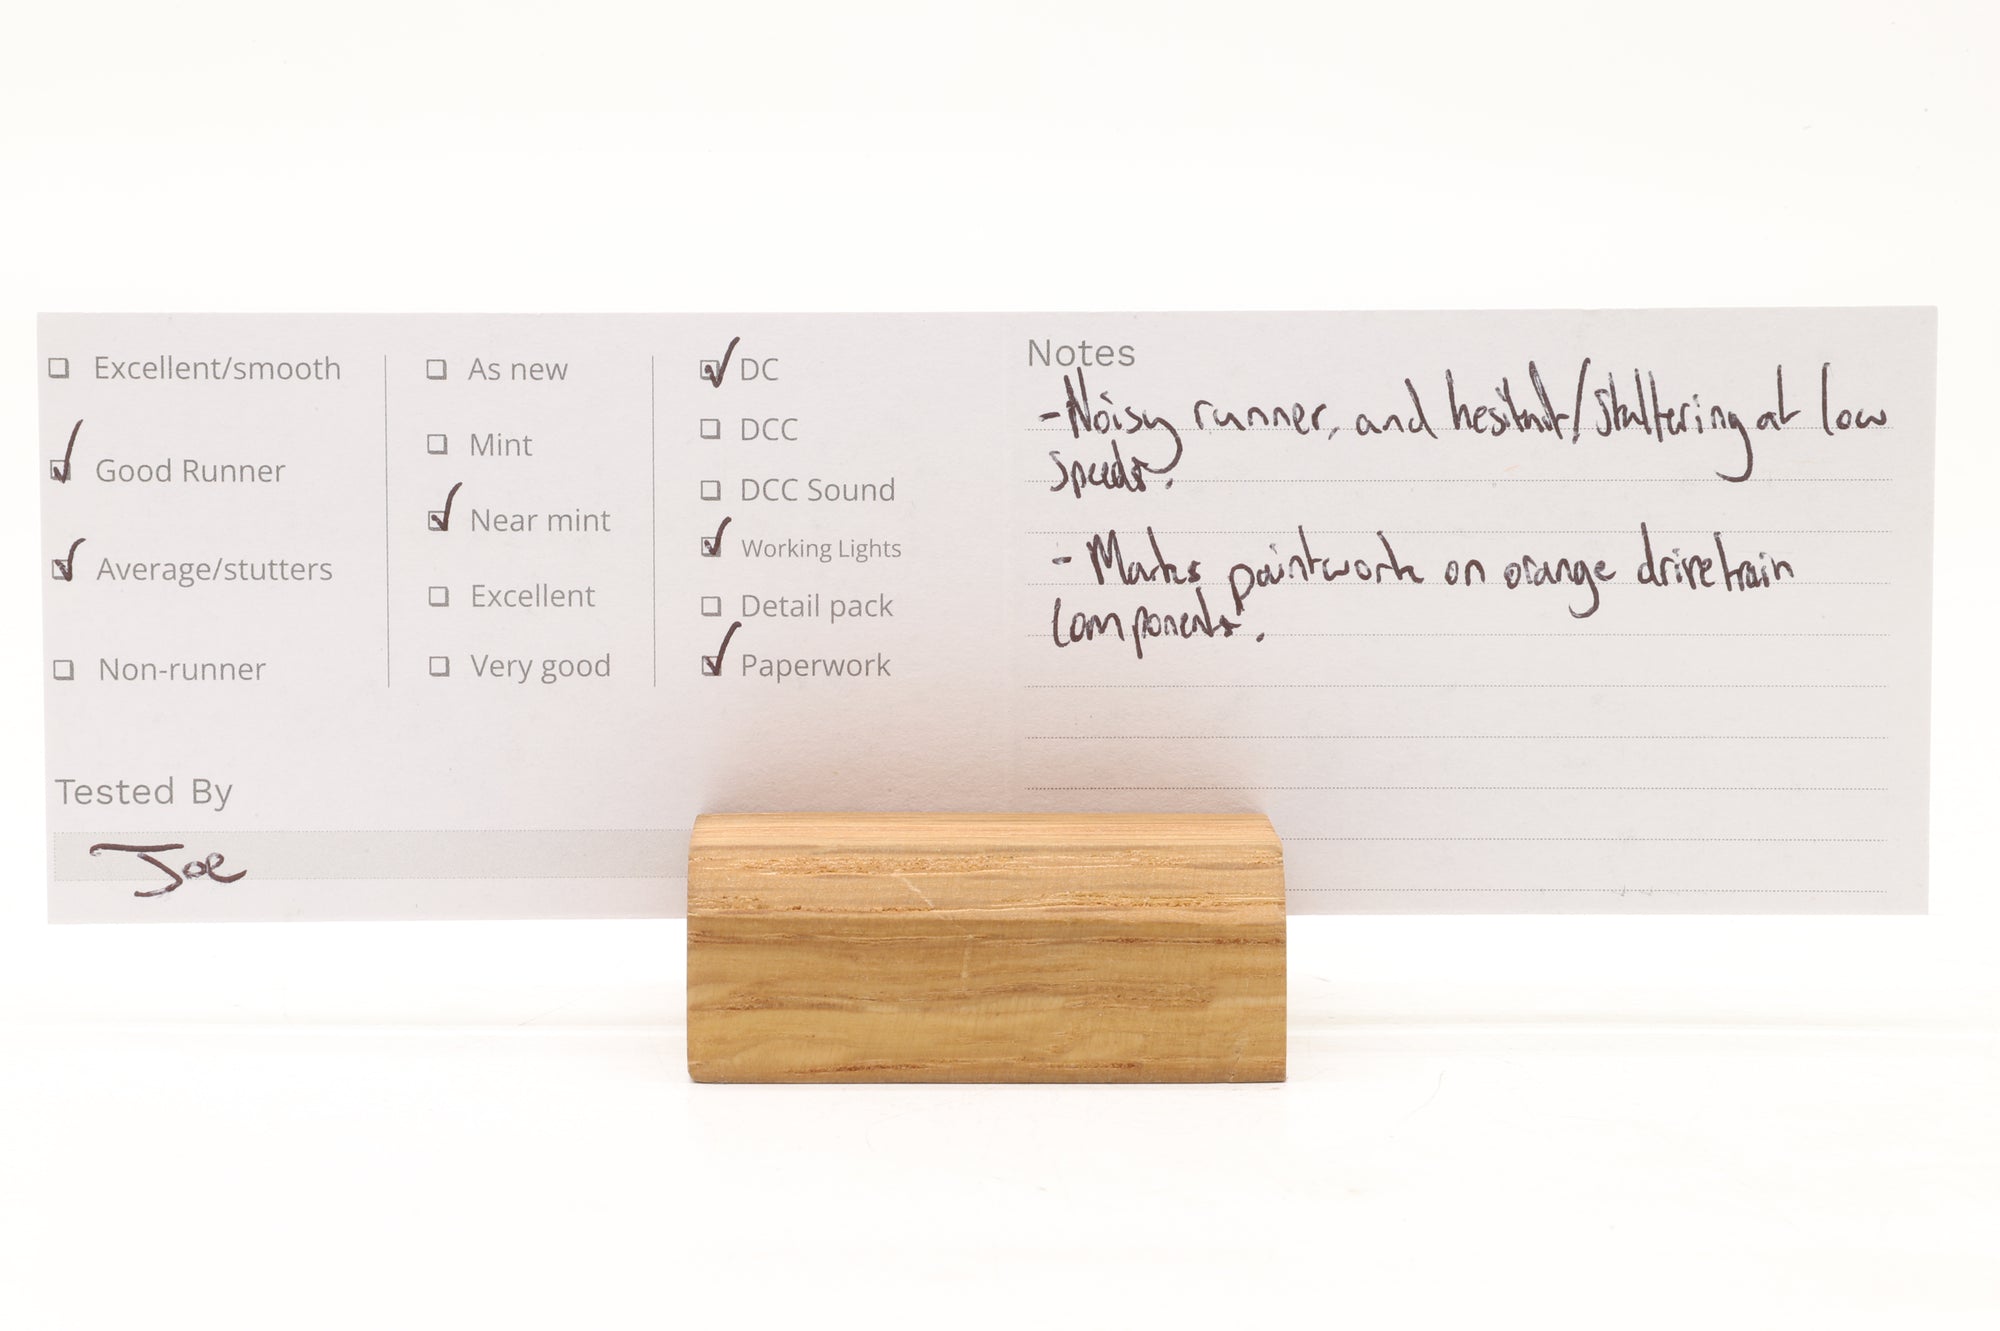 Excellent/smooth
Good Runner
Average/stutters
Non-runner
As new
Mint
Near mint
Excellent
Very good
DC
DCC
DCC Sound
Working Lights
Detail pack
Paperwork
Tested By
Joe
Notes
- Noisy runner, and hesitant/stuttering at low
speeds.
- Marks paintwork on orange drivetrain
components.